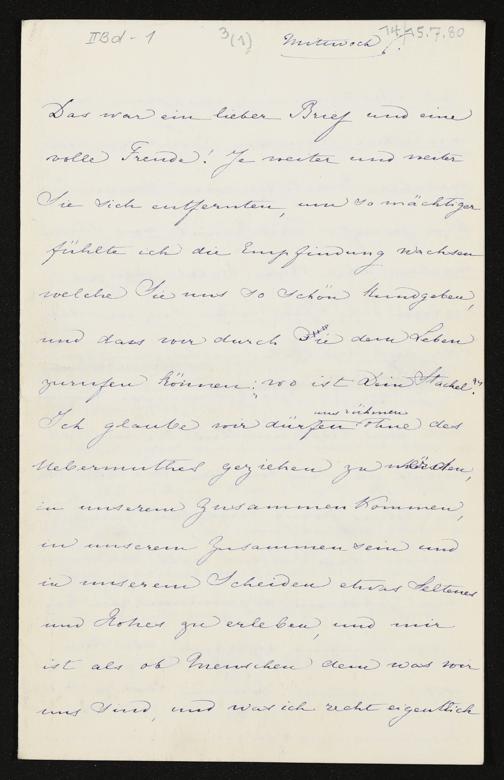 IIBd-1 3(1) Mittwoch 14/15.7.80
Das war ein lieber Brief und eine
volle Freude! Je weiter und weiter
Sie sich entfernten, um so mächtiger
fühlte ich die Empfindung wachsen
welche Sie uns so schön kundgeben,
und dass wir durch Sie dem Leben
zurufen können: "wo ist Dein Stachel?"
uns rühmen
Ich glaube wir dürfen ohne des
Uebermuthes geziehen zu werden,
in unserem Zusammenkommen,
in unserem Zusammensein und
in unserem Scheiden etwas Seltenes
und Hohes zu erleben, und mir
ist als ob Menschen dem was wir
uns sind, und was ich recht eigentlich